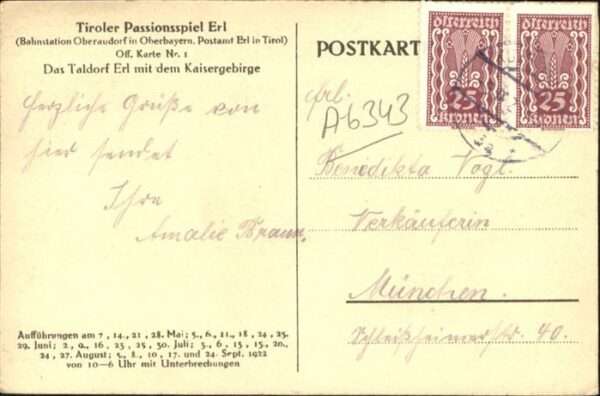 Tiroler Passionsspiel Erl
(Bahnstation Oberaudorf in Oberbayern, Postamt Erl in Tirol)
Off. Karte Nr. 1
Das Taldorf Erl mit dem Kaisergebirge
Herzliche Grüße von
hier sendet
Ihre
Amalie Braun.
Aufführungen am 7., 14., 21., 28. Mai; 5., 6., 11., 18., 24., 25.
29. Juni; 2., 9., 16., 23., 25., 30. Juli; 5., 6., 13., 15., 20.,
24., 27. August; 3., 8., 10., 17. und 24. Sept. 1922
von 10—6 Uhr mit Unterbrechungen
POSTKART
österreich
25
kronen
österreich
25
kronen
Frl.
A6343
Benedikta Vogl.
Verkäuferin
München.
Schleißheimerstr. 40.